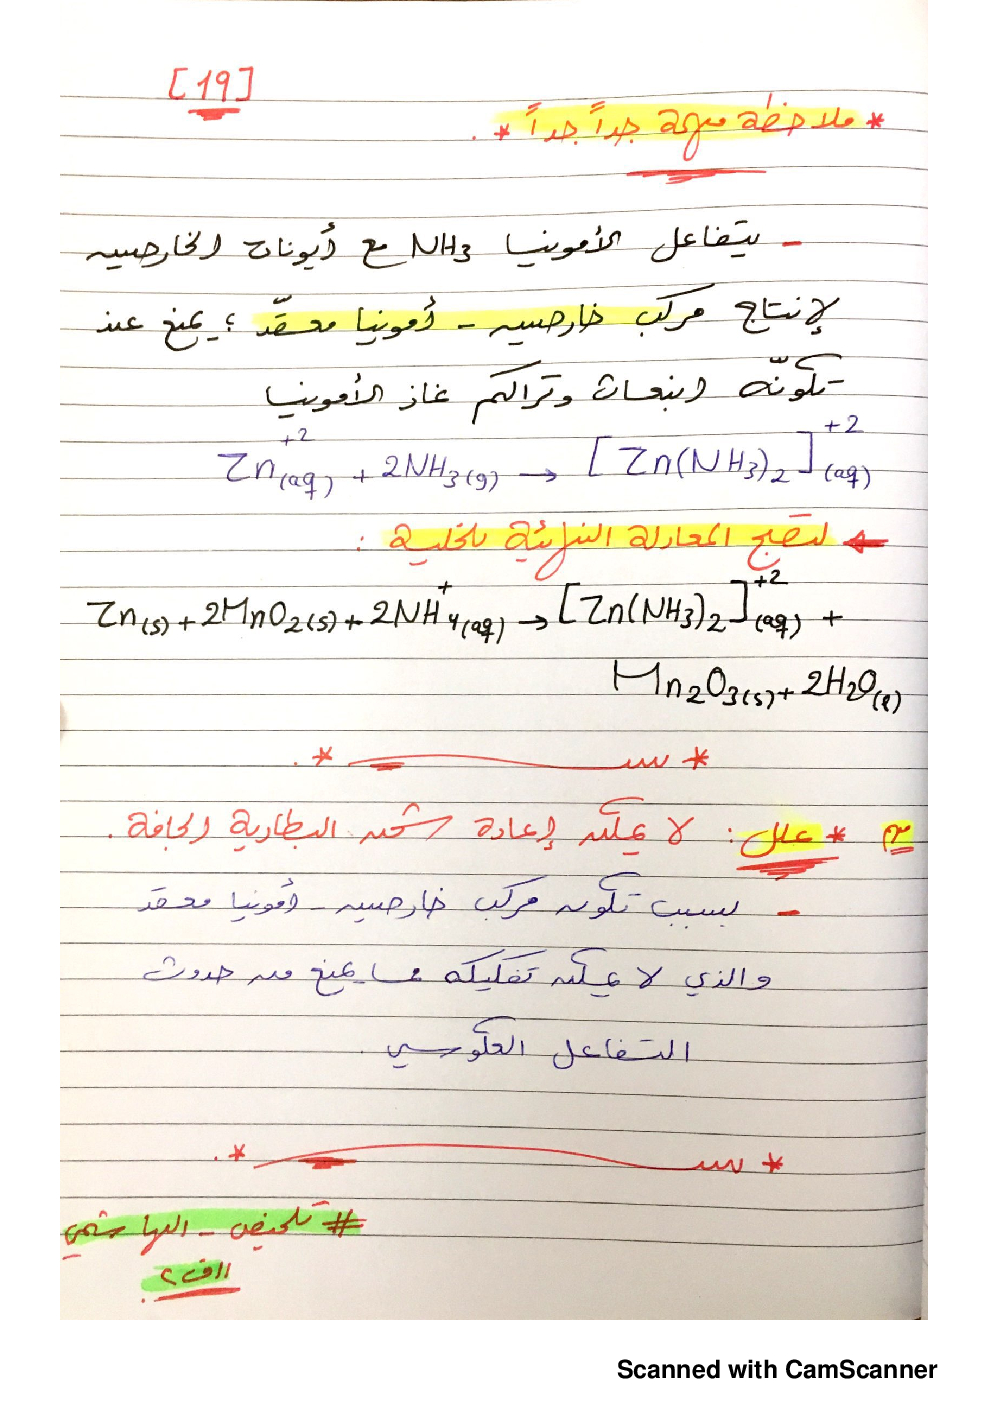 [19]
* ملاحظة مهمة جداً جداً *
- يتفاعل الأمونيا NH3 مع أيونات الخارصين
لإنتاج مركب خارصين - أمونيا معقّد ؛ يمنع عند
تكوّنه انبعاث وتراكم غاز الأمونيا
Zn+2(aq) + 2NH3(g) → [Zn(NH3)2]+2(aq)
← لتصبح المعادلة النهائية للخلية :
Zn(s) + 2MnO2(s) + 2NH4+(aq) → [Zn(NH3)2]+2(aq) +
Mn2O3(s) + 2H2O(l)
* علل : لا يمكن إعادة شحن البطارية الجافة .
- بسبب تكون مركب خارصين - أمونيا معقد
والذي لا يمكن تفكيكه مما يمنع من حدوث
التفاعل العكوسي .
# تلخيص - الهاشمي
١١ف٢
Scanned with CamScanner